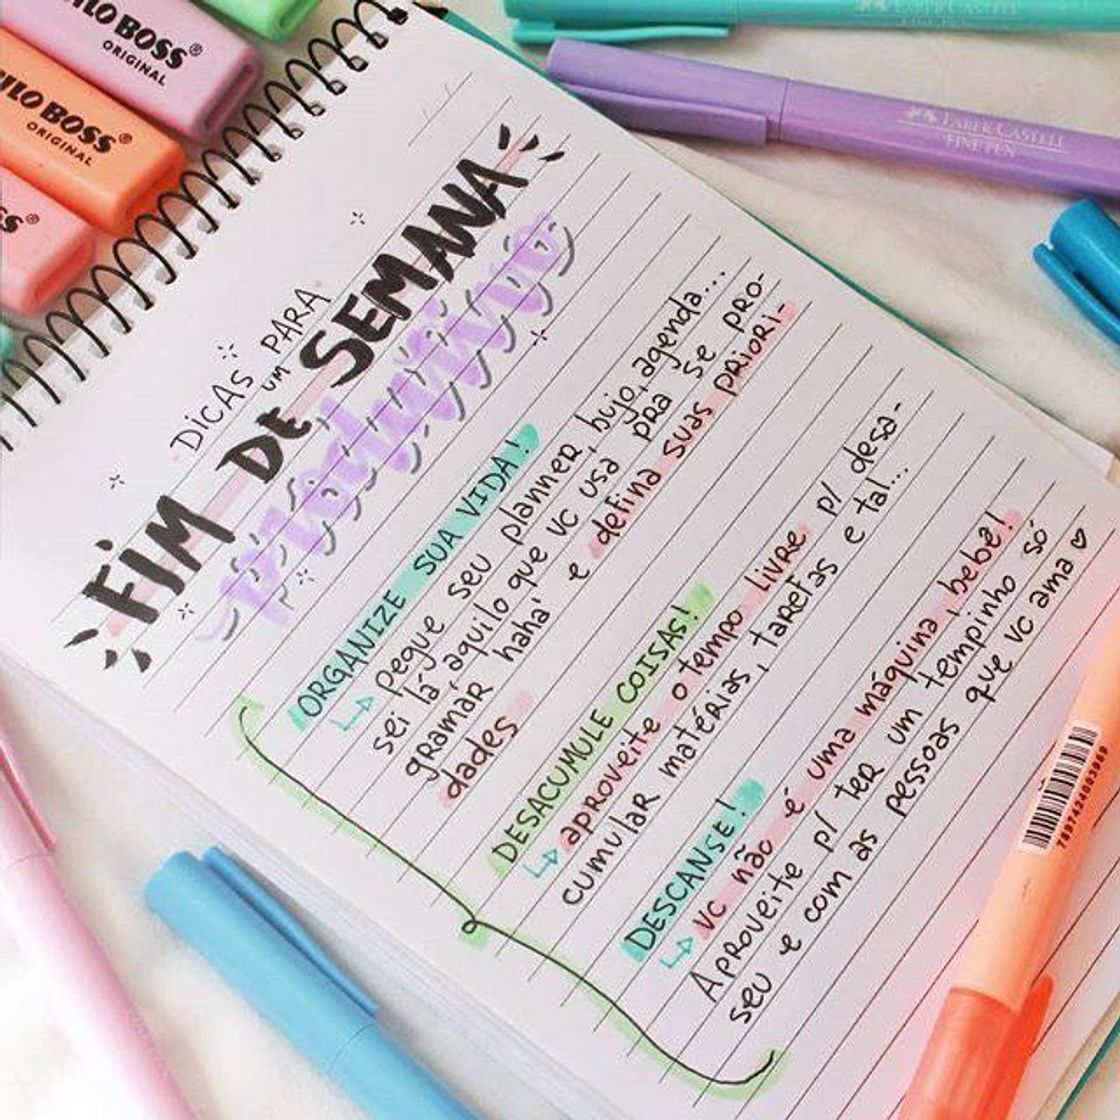 STABILO BOSS®
ORIGINAL
STABILO BOSS®
ORIGINAL
FABER-CASTELL
FINE PEN
FABER CASTELL
FINE PEN
DICAS PARA
UM
FIM DE SEMANA
produtivo
ORGANIZE SUA VIDA!
pegue seu planner, bujo, agenda...
sei lá, aquilo que vc usa pra se pro-
gramar haha' e defina suas priori-
dades
DESACUMULE COISAS!
aproveite o tempo livre p/ desa-
cumular matérias, tarefas e tal...
DESCANSE!
vc não é uma máquina, bebê!
Aproveite p/ ter um tempinho só
seu e com as pessoas que vc ama ♡